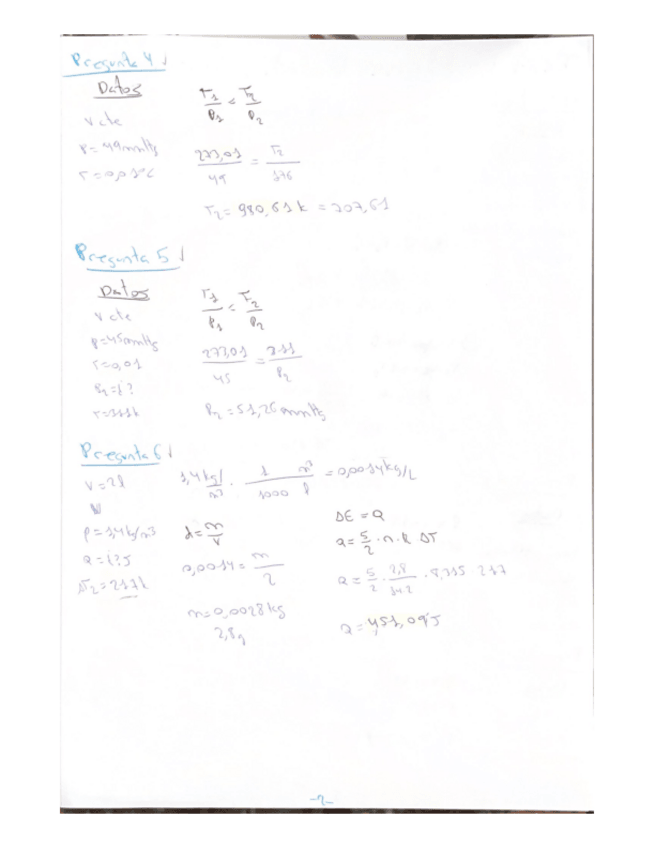 Pregunta 4
Datos
V cte
P = 49mmHg
T = 0,01ºC
T1/P1 = T2/P2
273,01/49 = T2/176
T2 = 980,61 k = 707,61
Pregunta 5
Datos
V cte
P=45mmHg
T=0,01
P2=¿?
T=311k
T1/P1 = T2/P2
273,01/45 = 311/P2
P2 = 51,26 mmHg
Pregunta 6
V=2l
ρ = 1,4 kg/m3
Q = ¿? J
ΔT2 = 217k
1,4 kg/m³ · 1 m³/1000 l = 0,0014 kg/L
d = m/V
0,0014 = m/2
m = 0,0028 kg
2,8g
ΔE = Q
Q = 5/2 · n · R ΔT
Q = 5/2 · 2,8/14·2 · 8,315 217
Q = 451,09J
-2-